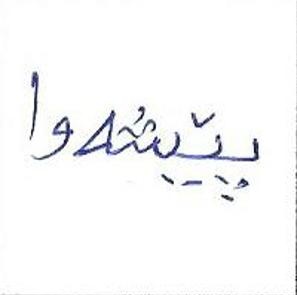 پێشەوا